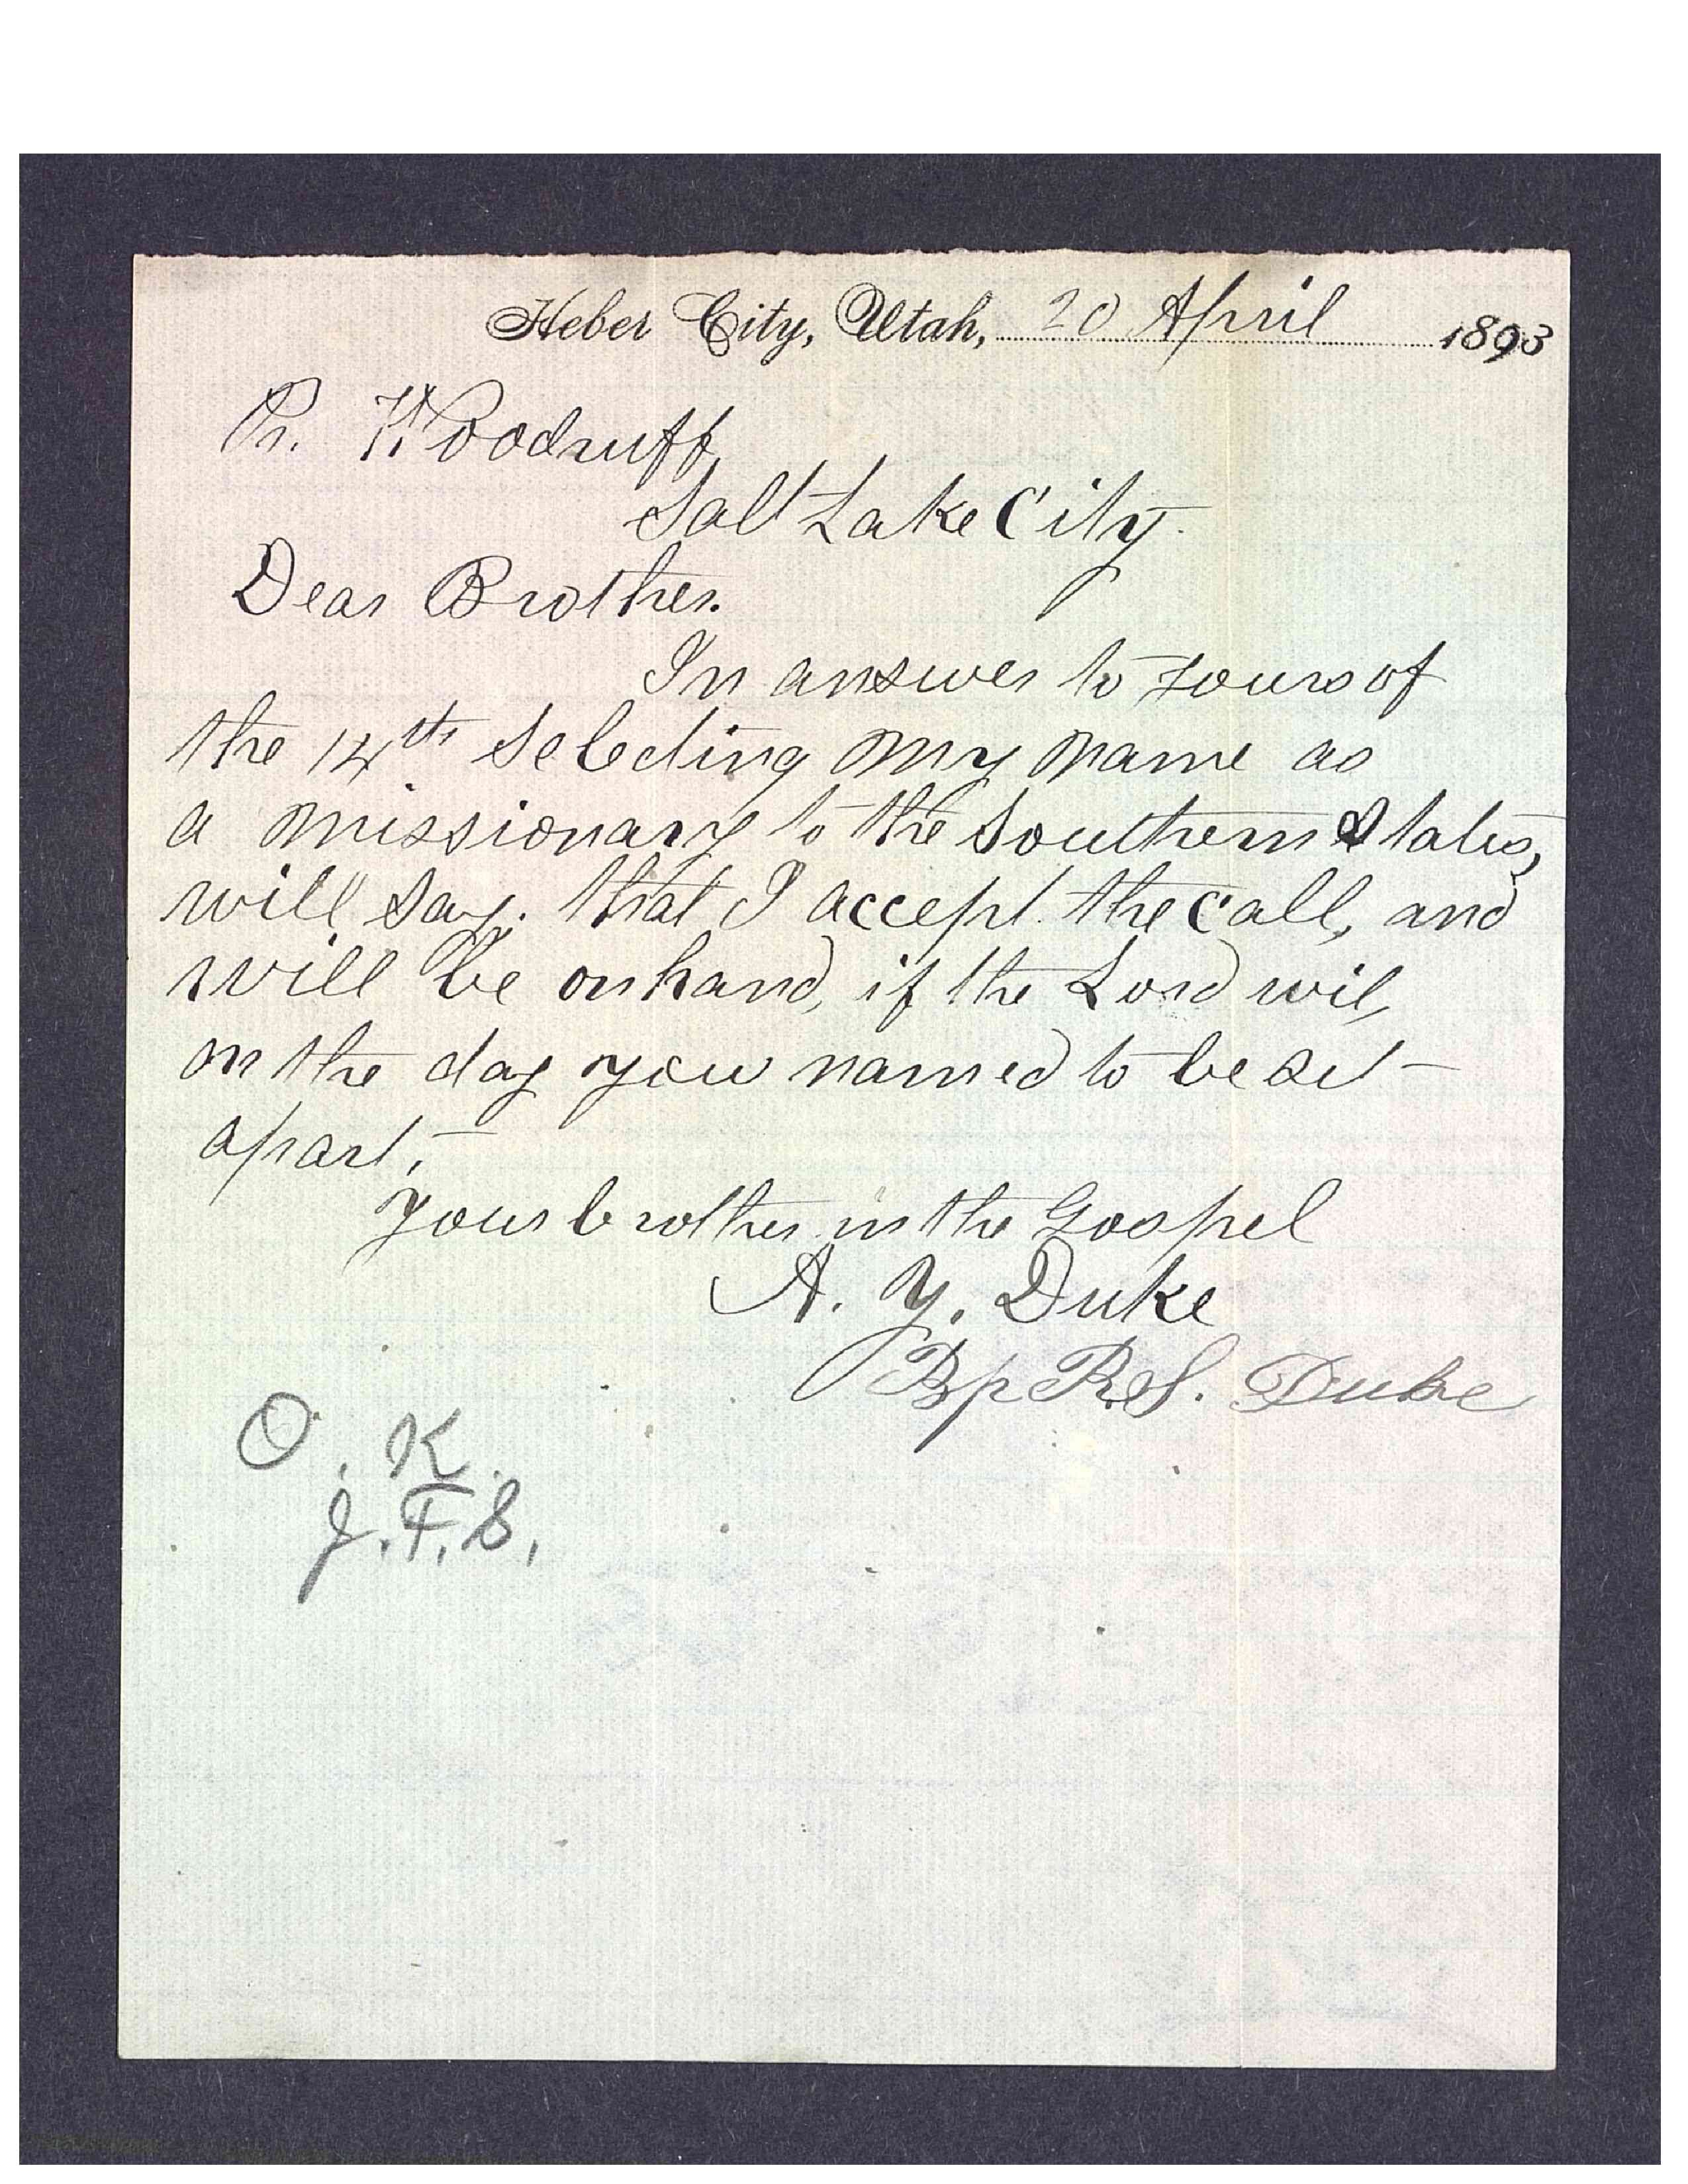 Heber City, Utah, 20 April 1893
Pr. Woodruff
Salt Lake City.
Dear Brother.
In answer to yours of
the 14th selecting my name as
a missionary to the Southern States,
will say. that I accept the call, and
will be on hand, if the Lord wil,
on the day you named to be set
apart.
Your brother in the Gospel
A. Y. Duke
Bp R.S. Duke
O.K.
J.F.S.